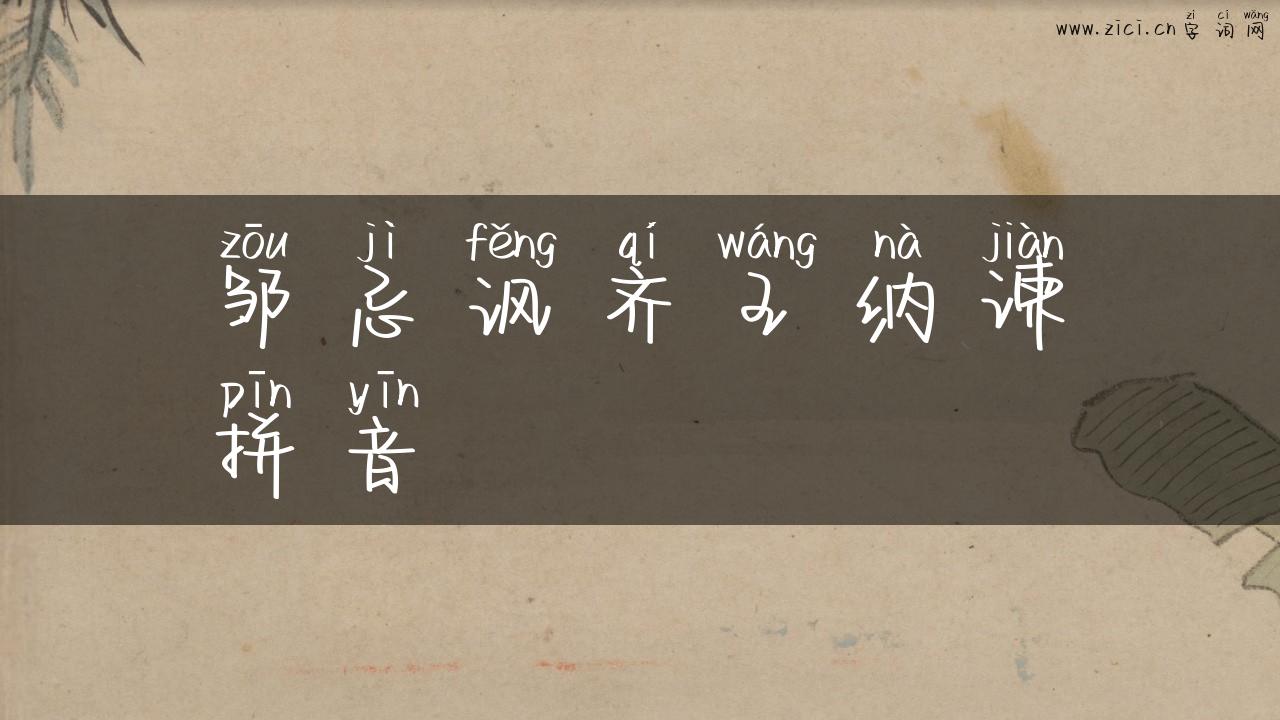 zì cí wǎng
www.zici.cn 字词网
zōu jì fěng qí wáng nà jiàn
邹忌讽齐王纳谏
pīn yīn
拼音